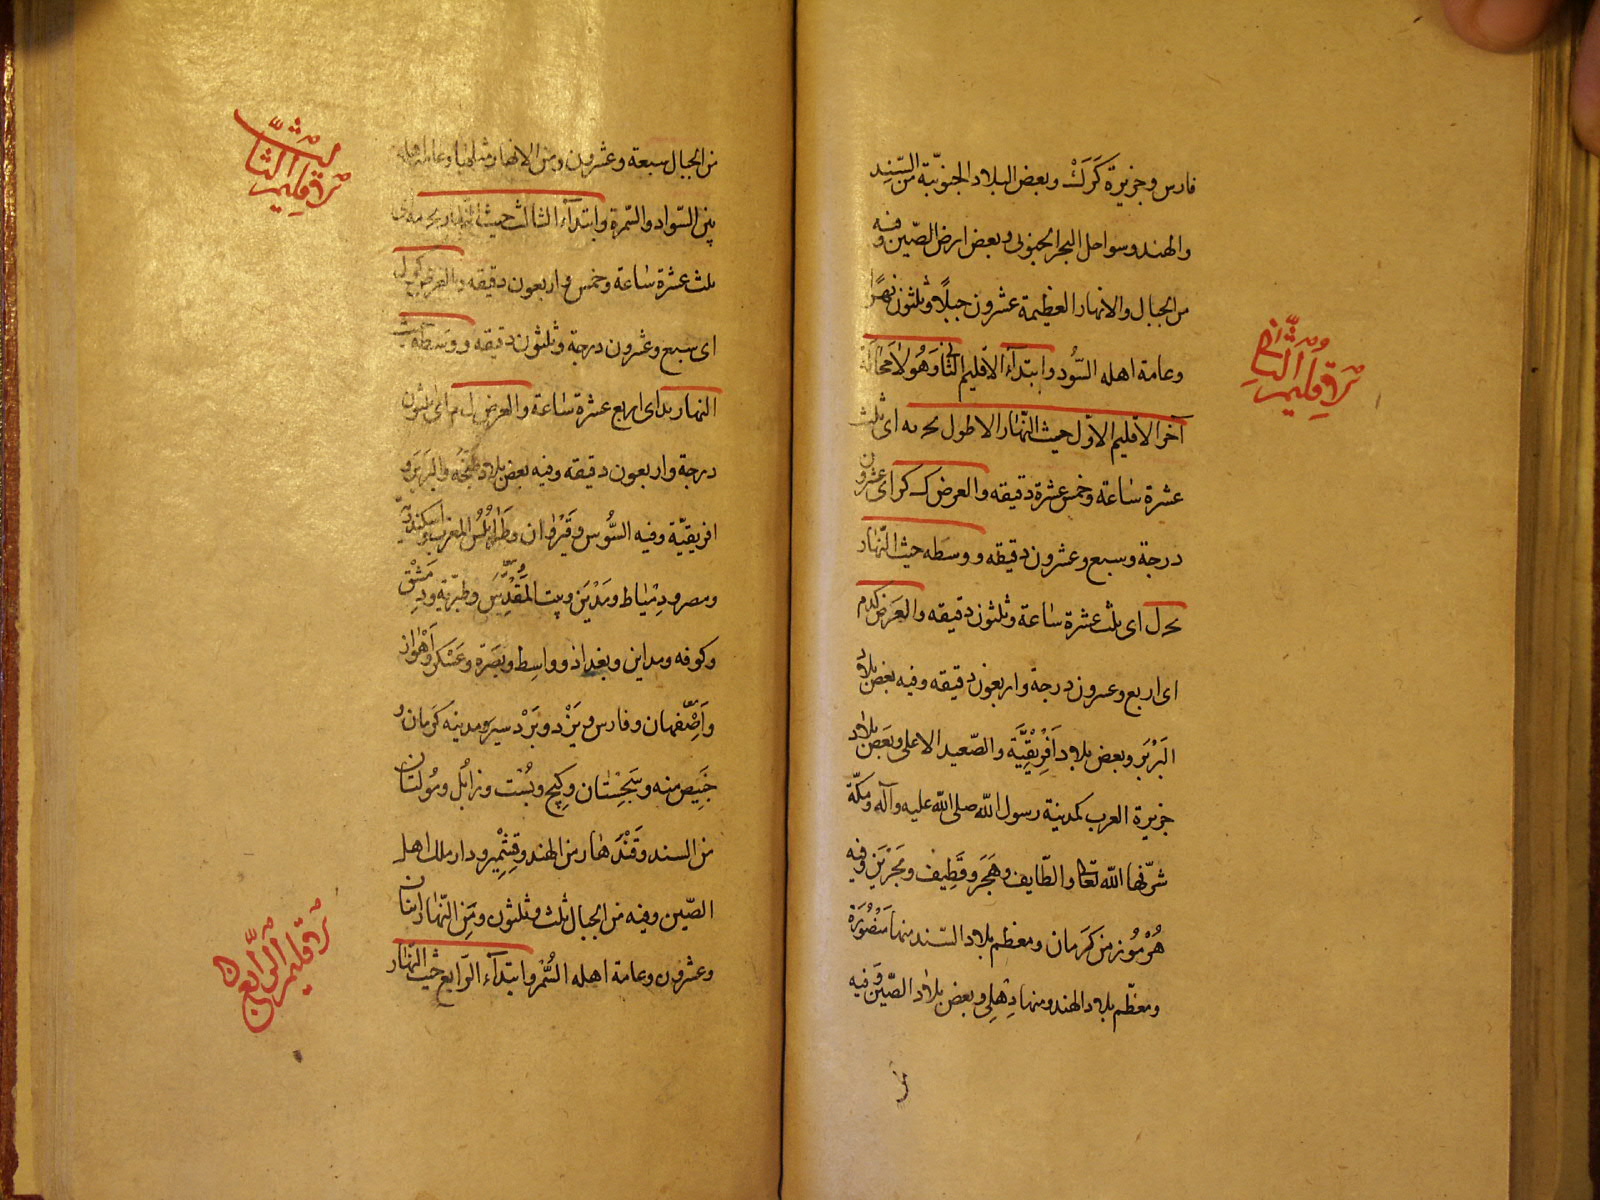 فارس وجزيرة كَرَكْ وبعض البلاد الجنوبيّة من السّنِد
والهند وسواحل البحر الجنوبى وبعض ارض الصّين وفيه
من الجبال والانهار العظيمة عشرون جبلًا وثلثون نهرًا
وعامة اهله السُّود وابتدآء الاقليم الثّانى وهُو لا محَالة
آخر الاقليم الاوّل حيث النّهار الاطول يحـ يه اى ثلث
عشرة ساعة وخمس عشرة دقيقه والعرض ك كز اى عشرون
درجة وسبع وعشرون دقيقه ووسَطه حيث النّهار
يحـ ل اى ثلث عشرة ساعة وثلثون دقيقه والعَرض كد م
اى اربع وعشرون درجة واربعون دقيقه وفيه بعض بلاد
البَرْبَر وبعض بلاد اَفْرِيْقِيَّة والصّعيد الاعلى وبَعض بلاد
جزيرة العرب كمدينة رسول اللّه صلى اللّه عليه وآله ومكّة
شرّفها اللّه تعَا والطّايف وهَجَر وقَطِيف وبَحْرَين وفيه
هُرْمُوز من كَرَمان ومعظم بلاد السّند منها مَنْصُورَة
ومعظّم بلاد الهند ومنها دِهْلى وبعض بلاد الصّين وفيه
اقليم الثّانى
من الجبال سبعة وعشرون ومن الانهار مثلها وعامّة اهله
بين السّواد والسّمرة وابتدآء الثالث حيث النّهار يحـ مه اى
ثلث عشرة ساعة وخمس واربعون دقيقه والعرض كز ل
اى سبع وعشرون درجة وثلثون دقيقه ووَسَطه حيث
النهار يد اى اربع عشرة ساعة والعرض ل م اى ثلثون
درجة واربعون دقيقه وفيه بعض بلاد طنجَه والبَربَر و
افريقيّة وفيه السُّوس وقَيْرُوان وطَرابُلُس المغرب واسكندريّة
ومصر ودِمْيَاط ومَدْيَن وبيت المُقَدَّس وطَبَرِيّة ودِمَشْق
وكوفه ومداين وبغداد وواسِط وبَصرَة وعَسْكر واَهْواز
واَصْفهان وفارس ويَزْد وبَرْدسير ومدينه كرمان و
خَبِيص منه وسَجِسْتان وكِيج وبُسْت وزابُل ومُولتان
من السند وقَنْدَهار من الهند وقِشْمِير ودار ملك اهل
الصّين وفيه من الجبال ثلث وثلثون ومن النّهار اثنان
وعشرون وعامة اهله السُّمْر وابتدآء الرّابع حيث النّهار
اقليم الثّالث
اقليم الرّابع